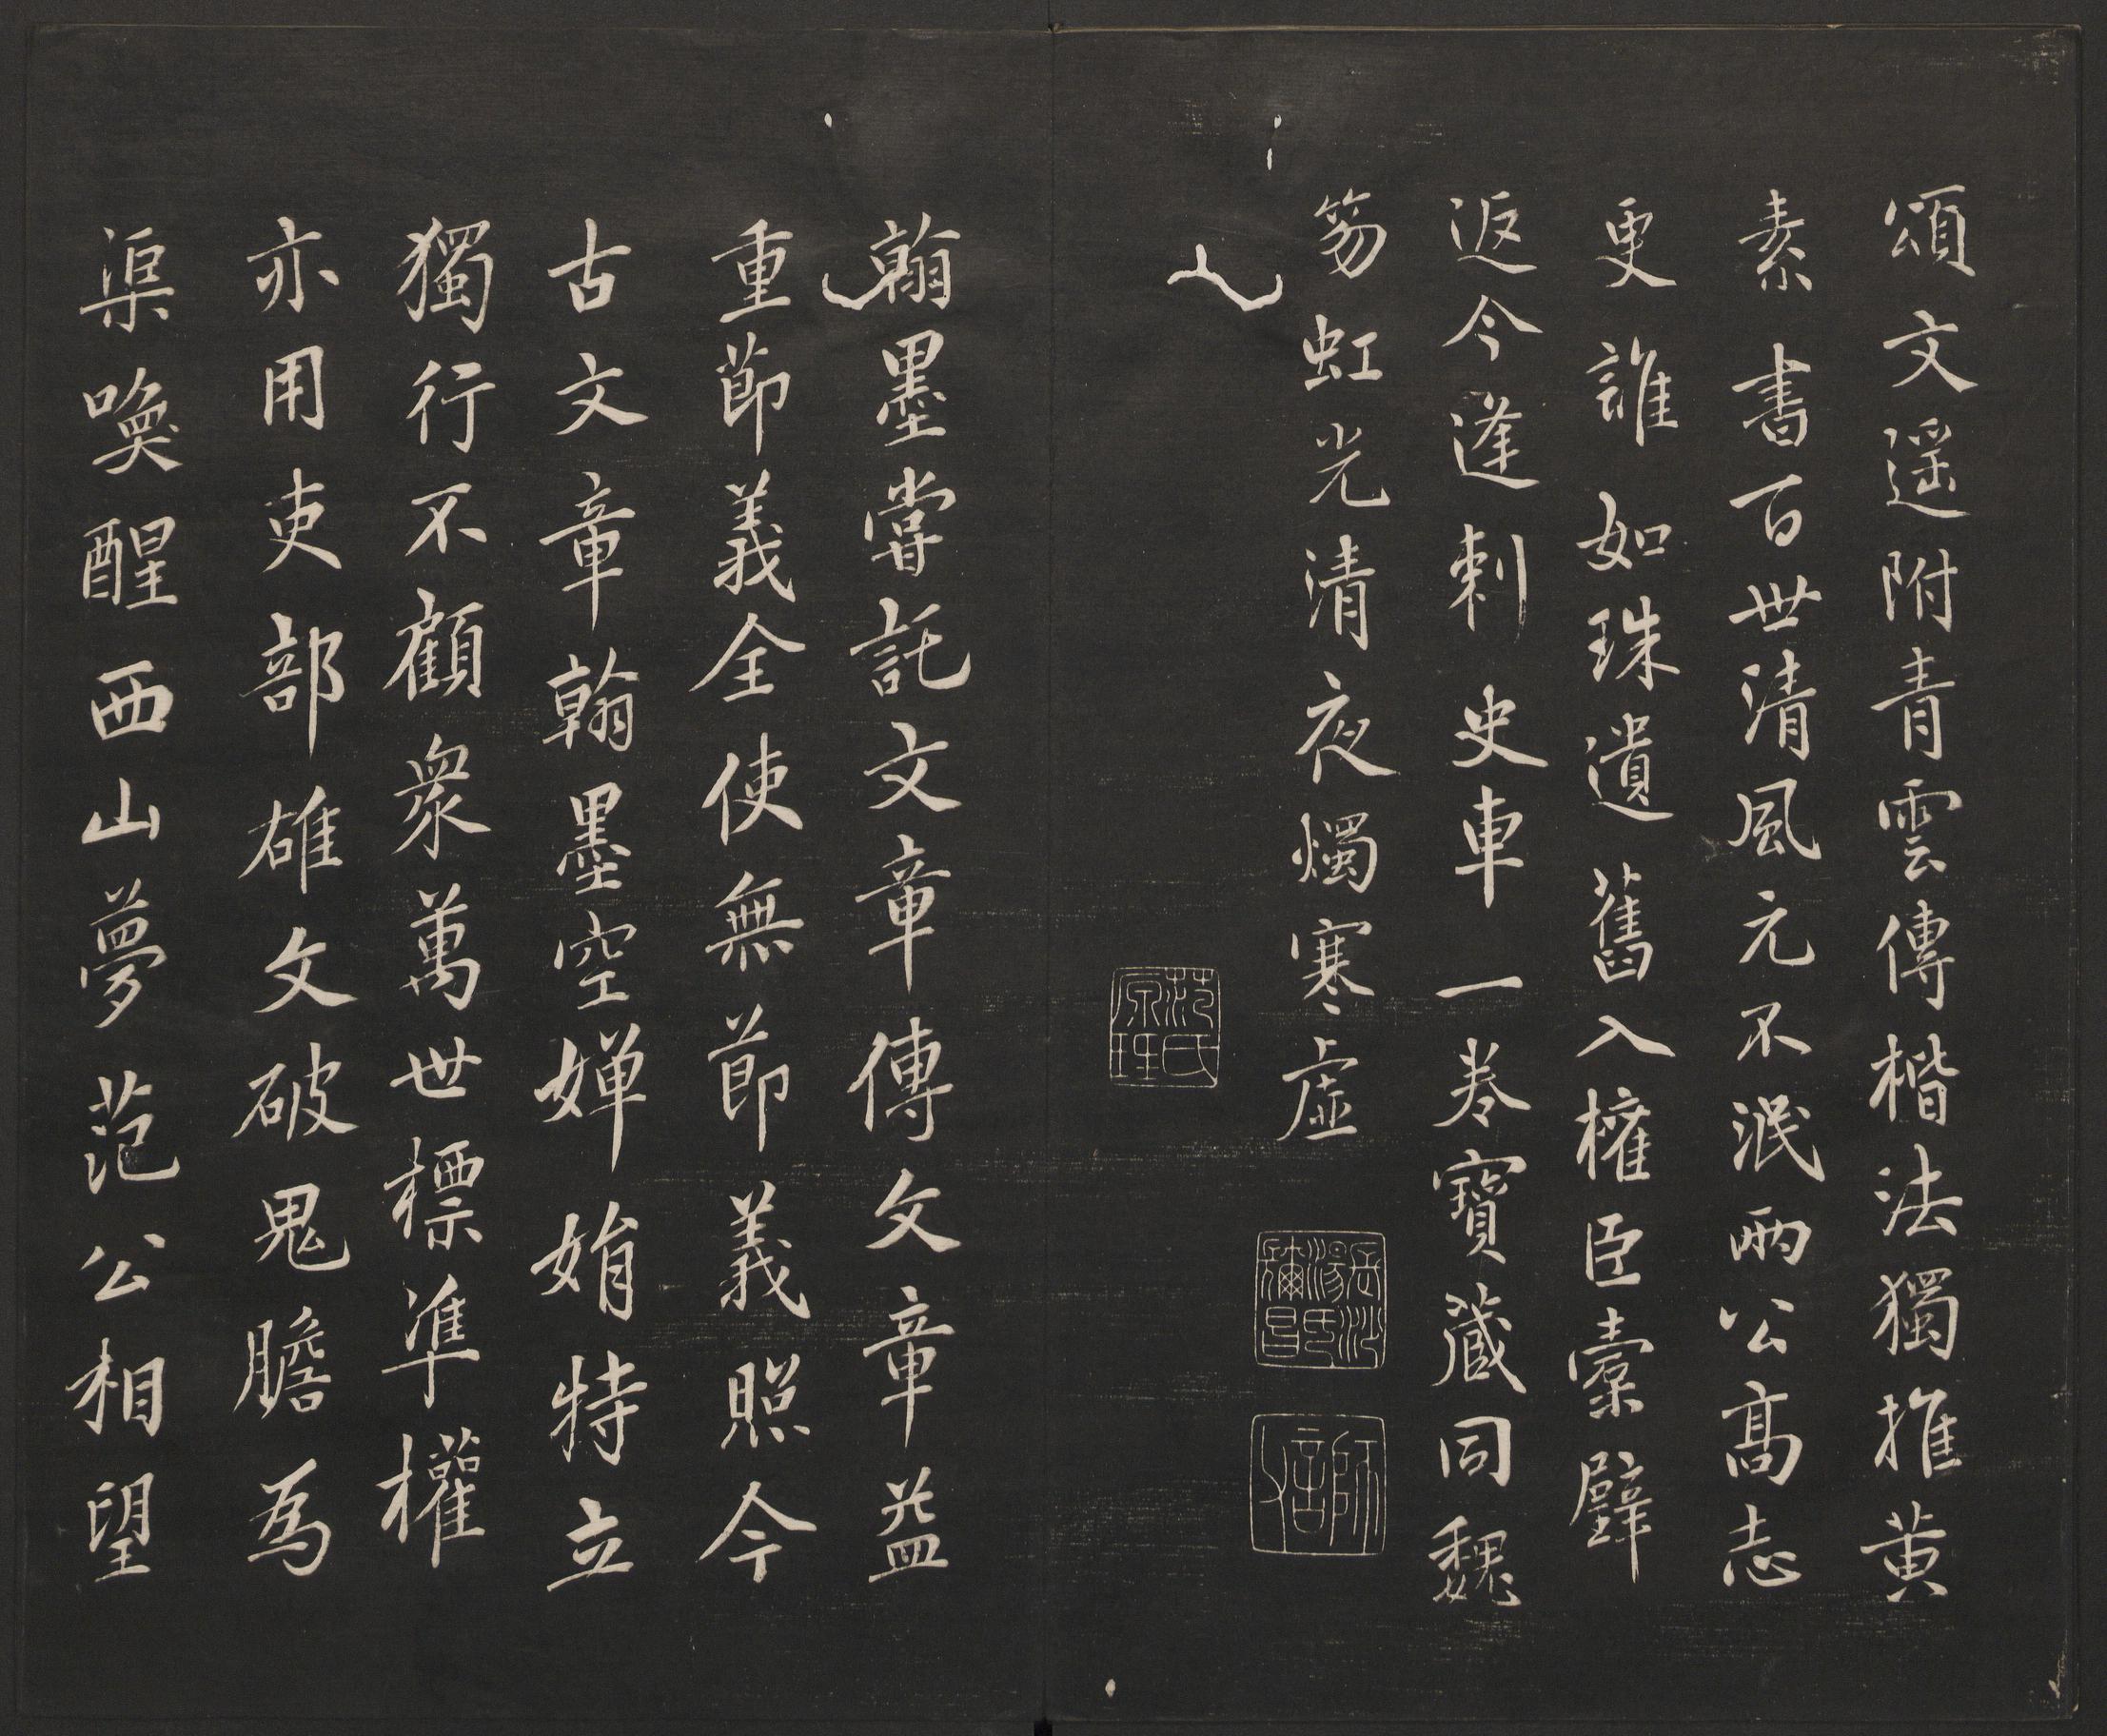 頌文遥附青雲傳楷法獨推黄
素書百世清風元不泯兩公髙志
更誰如珠遺舊入權臣橐璧
返今逢刺史車一卷寳藏同魏
笏虹光清夜燭寒虚
范氏
翰墨嘗託文章傳文章益
重莭義全使無莭義照今
古文章翰墨空嬋娟特立
獨行不顧衆萬世標準權
亦用吏部雄文破鬼膽為
渠喚醒西山夢范公相望